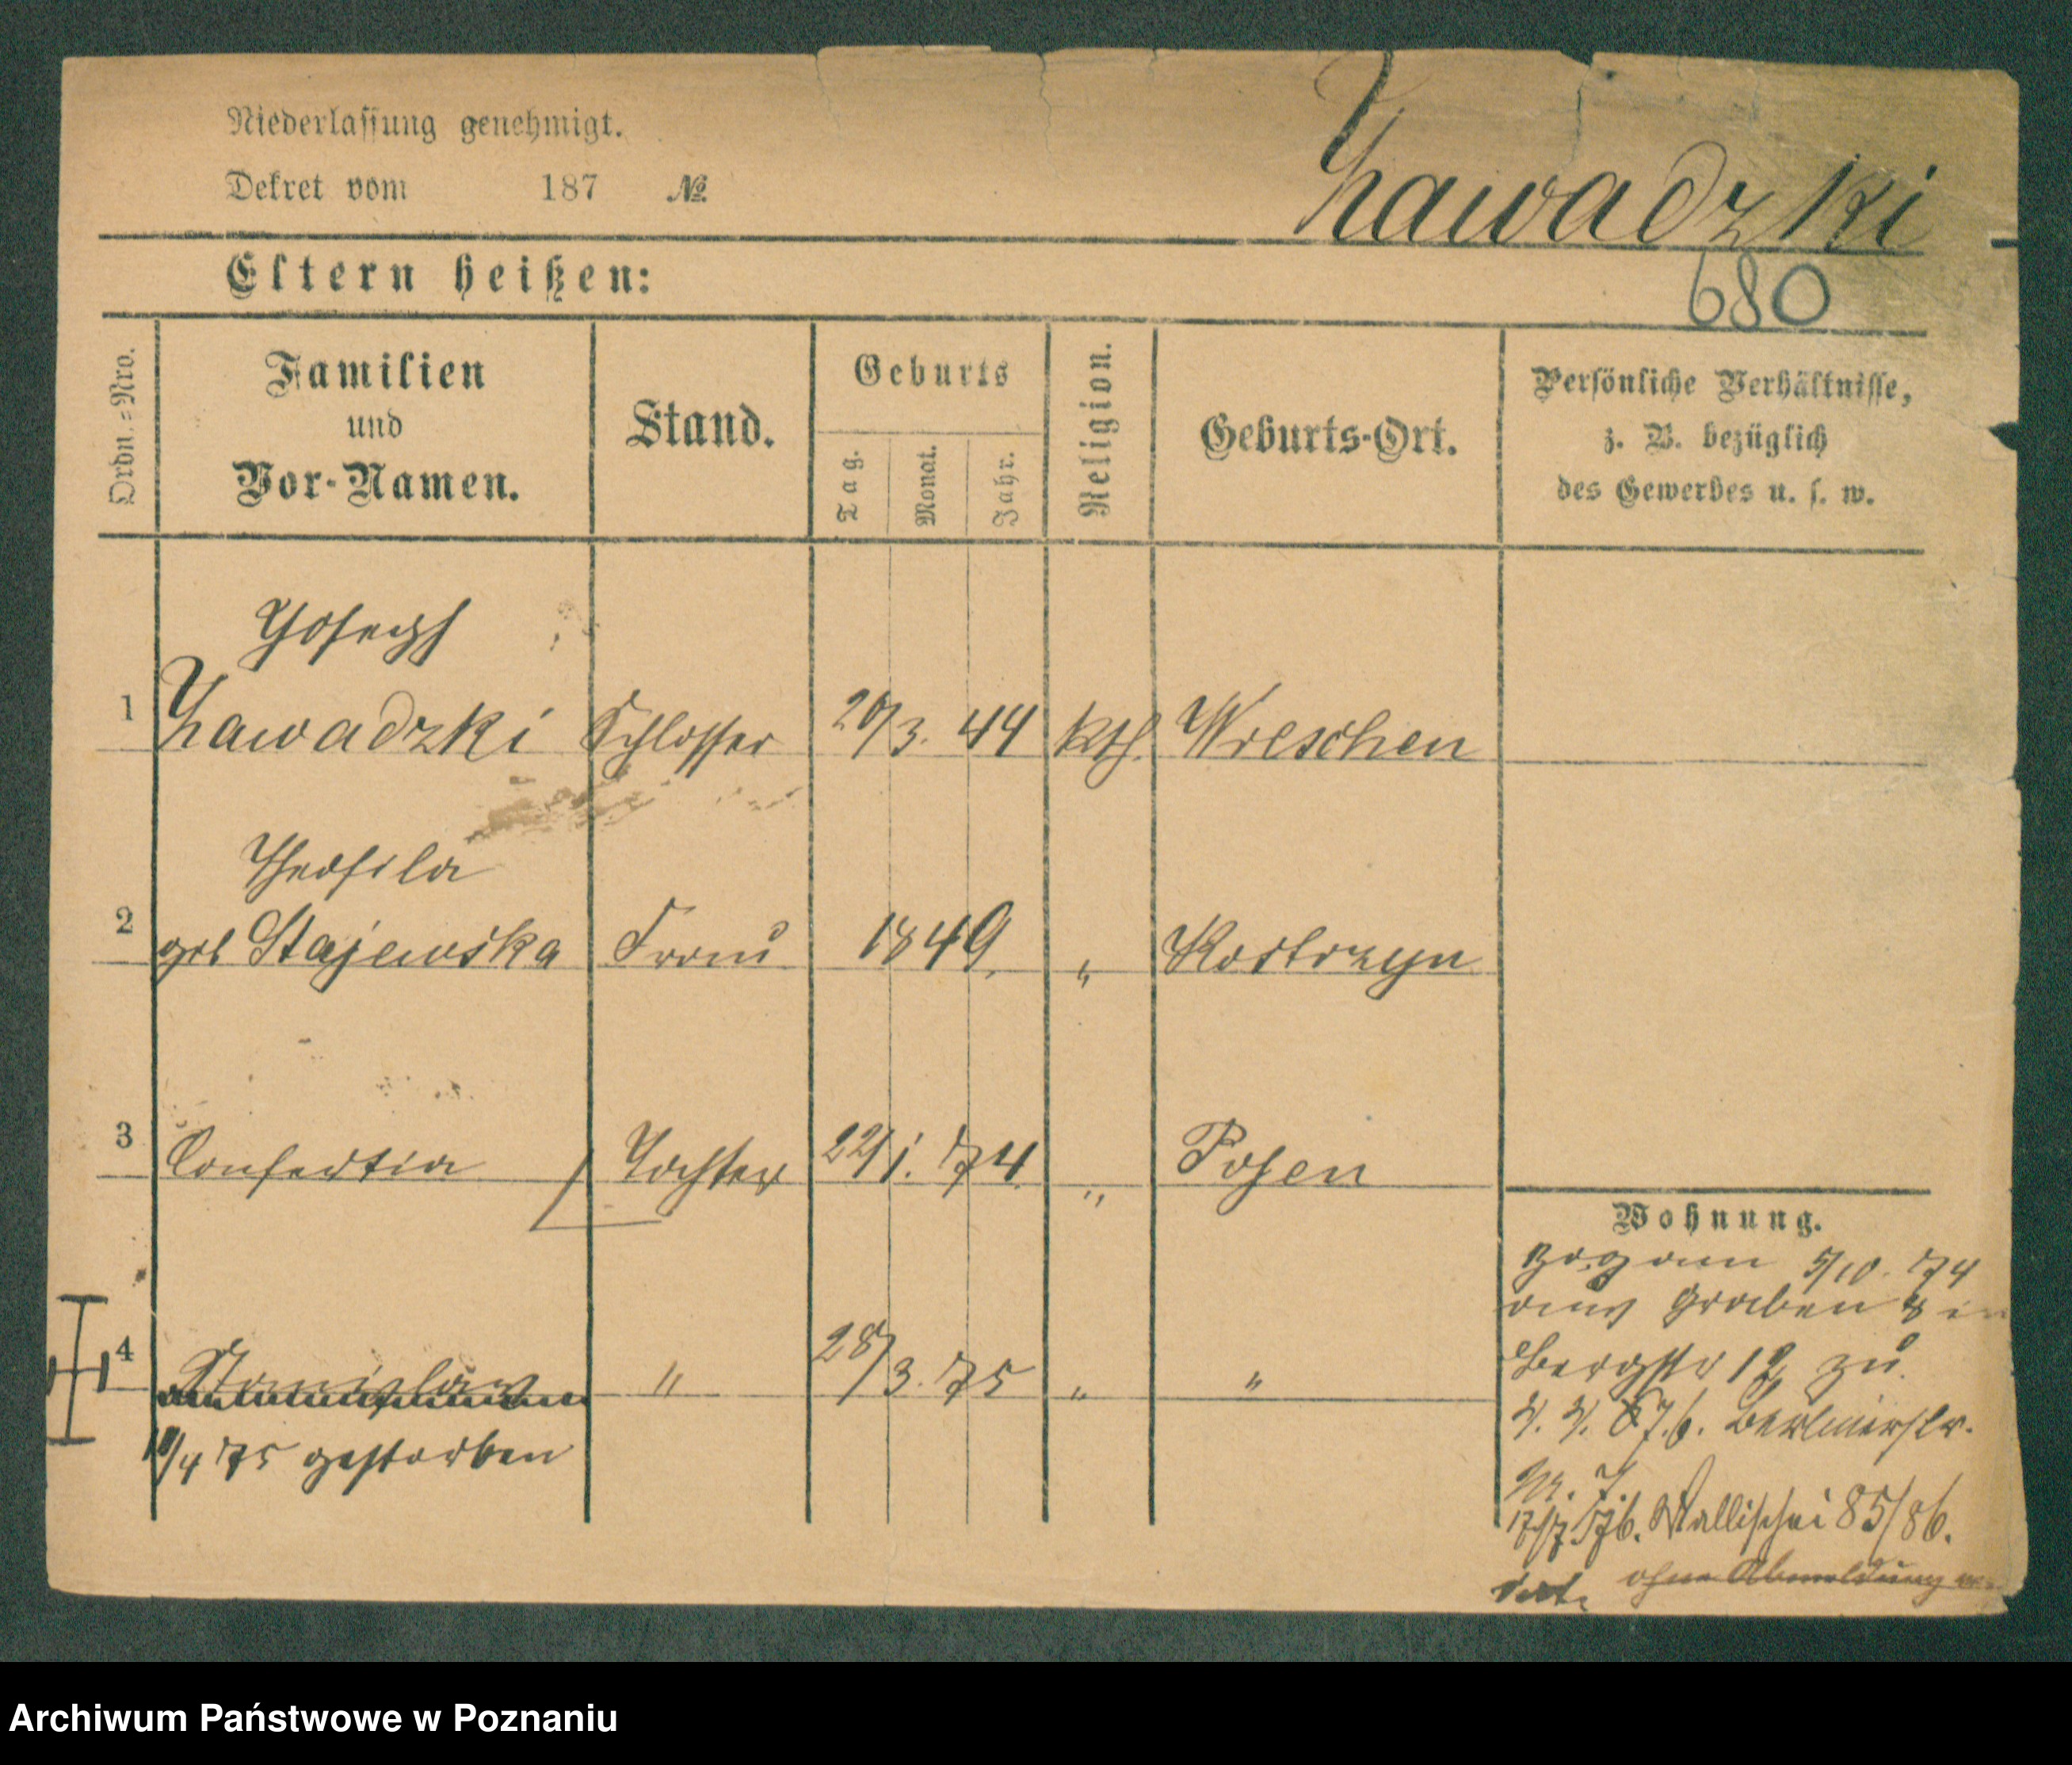 Niederlassung genehmigt.
Dekret vom 187 №
Zawadzki
Eltern heißen:
680
Ordn.=Nro.
Familien
und
Vor-Namen.
Stand.
Geburts
Tag.
Monat.
Jahr.
Religion.
Geburts-Ort.
Persönliche Verhältnisse,
z. B. bezüglich
des Gewerbes u. s. w.
Joseph
1 Zawadzki Schlosser 20/3. 44 kth. Wreschen
Theofila
2 geb Stajewska Frau 1849. " Kostrzyn
3 Tochter 22/1. 74. " Posen
Wohnung.
zog am 5/10. 74
aus Graben 8 in
4 Stanislaw " 28/3. 75 " "
Bergstr 12 zu.
1/4 75 gestorben
Berlinerstr.
Nr. 7.
17/7 76. Wallischei 85/86.
ohne Abmeldung